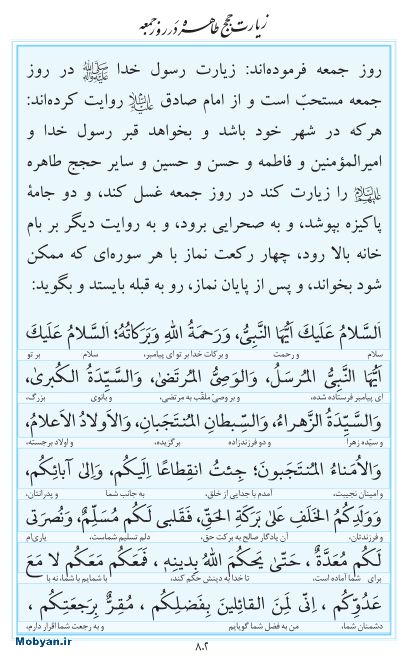 زیارت حجج طاهره در روز جمعه
روز جمعه فرموده‌اند: زیارت رسول خدا ﷺ در روز
جمعه مستحبّ است و از امام صادق علیه‌السلام روایت کرده‌اند:
هرکه در شهر خود باشد و بخواهد قبر رسول خدا و
امیرالمؤمنین و فاطمه و حسن و حسین و سایر حجج طاهره
علیهم‌السلام را زیارت کند در روز جمعه غسل کند، و دو جامهٔ
پاکیزه بپوشد، و به صحرایی برود، و به روایت دیگر بر بام
خانه بالا رود، چهار رکعت نماز با هر سوره‌ای که ممکن
شود بخواند، و پس از پایان نماز، رو به قبله بایستد و بگوید:
اَلسَّلامُ عَلَيكَ اَيُّهَا النَّبِيُّ، وَرَحمَةُ اللهِ وَبَرَكاتُهُ؛ اَلسَّلامُ عَلَيكَ
سلام بر تو ای پیامبر، و رحمت و برکات خدا سلام بر تو
اَيُّهَا النَّبِيُّ المُرسَلُ، وَالوَصِيُّ المُرتَضىٰ، وَالسَّيِّدَةُ الكُبرىٰ،
ای پیامبر فرستاده شده، و بر وصیّ ملقّب به مرتضی، و بانوی بزرگ،
وَالسَّيِّدَةُ الزَّهراءُ، وَالسِّبطانِ المُنتَجَبانِ، وَالاَولادُ الاَعلامُ،
و سیّده زهرا و دو فرزندزاده برگزیده، و اولاد برجسته،
وَالاُمَناءُ المُنتَجَبونَ؛ جِئتُ انقِطاعًا اِلَيكُم، وَاِلىٰ آبائِكُم،
و امینان نجیبت، آمدم با جدایی از خلق، به جانب شما و پدرانتان،
وَوَلَدِكُمُ الخَلَفِ عَلىٰ بَرَكَةِ الحَقِّ، فَقَلبي لَكُم مُسَلِّمٌ، وَنُصرَتي
و فرزندتان، آن یادگار صالح به برکت حق، دلم تسلیم شماست، و یاری‌ام
لَكُم مُعَدَّةٌ، حَتّىٰ يَحكُمَ اللهُ بِدينِهِ، فَمَعَكُم مَعَكُم لا مَعَ
برای شما آماده است، تا خدا به دینش حکم کند، با شمایم با شما، نه با
عَدُوِّكُم، اِنّي لَمِنَ القائِلينَ بِفَضلِكُم، مُقِرٌّ بِرَجعَتِكُم،
دشمنان شما، من به فضل شما گویایم و به رجعت شما اقرار دارم،
Mobyan.ir
۸۰۲